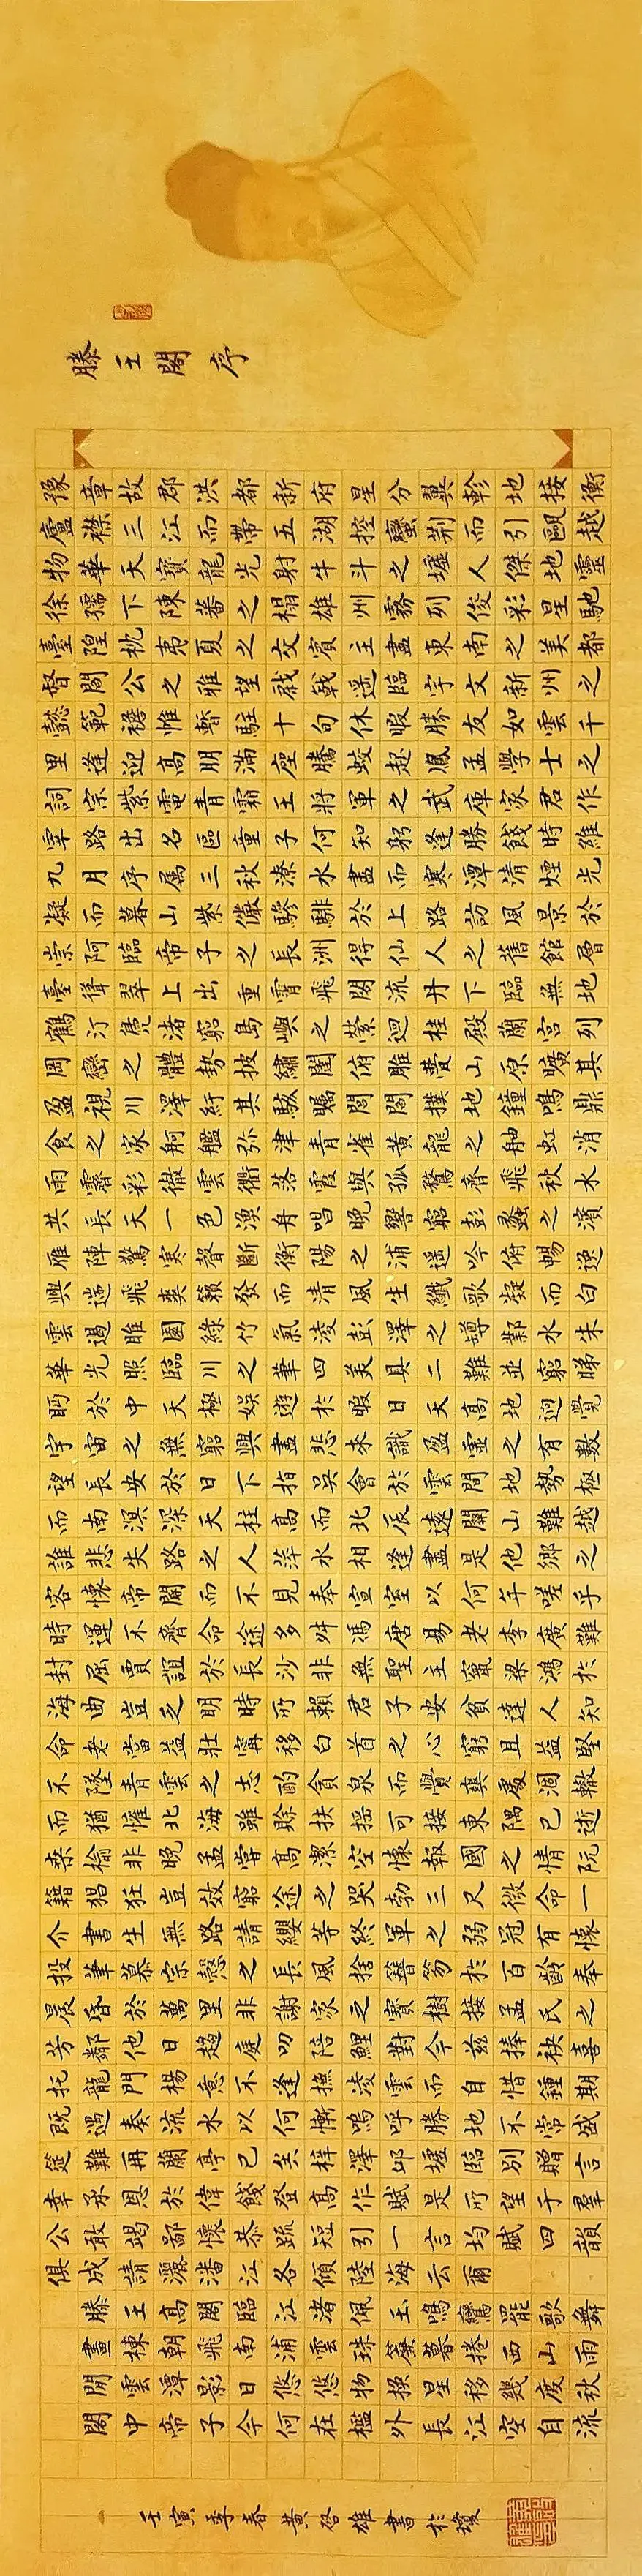 滕王閣序
豫章故郡洪都新府星分翼軫地接衡
廬襟三江而帶五湖控蠻荊而引甌越
物華天寶龍光射牛斗之墟人傑地靈
徐孺下陳蕃之榻雄州霧列俊彩星馳
臺隍枕夷夏之交賓主盡東南之美都
督閻公之雅望棨戟遥臨宇文新州之
懿範襜帷暫駐十旬休暇勝友如雲千
里逢迎高朋滿座騰蛟起鳳孟學士之
詞宗紫電青霜王將軍之武庫家君作
宰路出名區童子何知躬逢勝餞時維
九月序屬三秋潦水盡而寒潭清煙光
凝而暮山紫儼驂騑於上路訪風景於
崇阿臨帝子之長洲得仙人之舊館層
臺聳翠上出重霄飛閣流丹下臨無地
鶴汀鳧渚窮島嶼之縈迴桂殿蘭宮列
岡巒之體勢披繡闥俯雕甍山原曠其
盈視川澤紆其駭矚閭閻撲地鐘鳴鼎
食之家舸艦弥津青雀黃龍之舳虹消
雨霽彩徹雲衢落霞與孤鶩齊飛秋水
共長天一色漁舟唱晚響窮彭蠡之濱
雁陣驚寒聲斷衡陽之浦遥吟俯暢逸
興遄飛爽籟發而清風生纖歌凝而白
雲遏睢園綠竹氣凌彭澤之樽鄴水朱
華光照臨川之筆四美具二難並窮睇
眄於中天極娛遊於暇日天高地迥覺
宇宙之無窮興盡悲來識盈虛之有數
望長安於日下指吳會於雲間地勢極
而南溟深天柱高而北辰遠關山難越
誰悲失路之人萍水相逢盡是他鄉之
客懷帝閽而不見奉宣室以何年嗟乎
時運不齊命途多舛馮唐易老李廣難
封屈賈誼於長沙非無聖主竄梁鴻於
海曲豈乏明時所賴君子安貧達人知
命老當益壯甯移白首之心窮且益堅
不墜青雲之志酌貪泉而覺爽處涸轍
而猶懽北海雖賒扶搖可接東隅已逝
桑榆非晚孟嘗高潔空懷報國之情阮
籍猖狂豈效窮途之哭勃三尺微命一
介書生無路請纓等終軍之弱冠有懷
投筆慕宗愨之長風捨簪笏於百齡奉
晨昏於萬里非謝家之寶樹接孟氏之
芳鄰他日趨庭叨陪鯉對今茲捧袂喜
托龍門楊意不逢撫凌雲而自惜鍾期
既遇奏流水以何慚嗚呼勝地不常盛
筵難再蘭亭已矣梓澤邱墟臨別贈言
幸承恩於偉餞登高作賦是所望于羣
公敢竭鄙懷恭疏短引一言均賦四韻
俱成請灑潘江各傾陸海云爾
滕王高閣臨江渚佩玉鳴鸞罷歌舞
畫棟朝飛南浦雲珠簾暮捲西山雨
閒雲潭影日悠悠物換星移幾度秋
閣中帝子今何在檻外長江空自流
壬寅季春黄启雄書於瓊